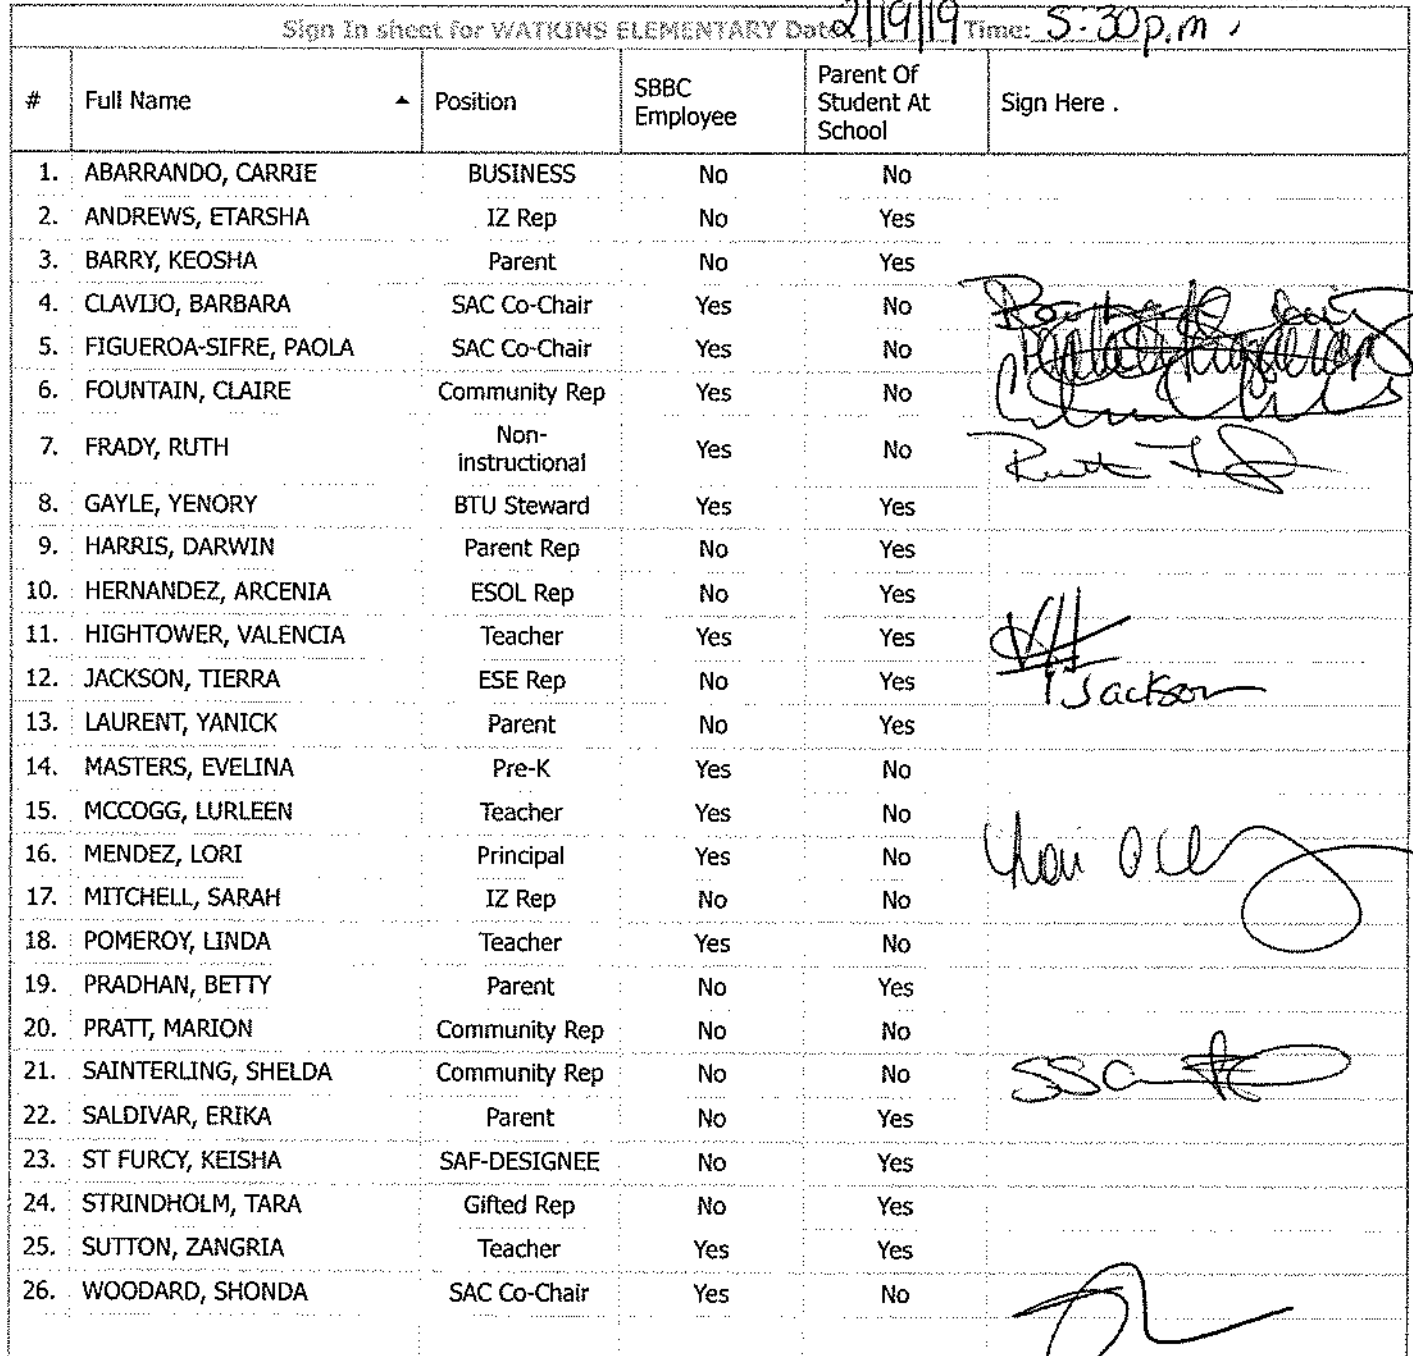 Sign In sheet for WATKINS ELEMENTARY Date: 2/19/19 Time: 5:30p.m.
# Full Name Position SBBC Employee Parent Of Student At School Sign Here .
1. ABARRANDO, CARRIE BUSINESS No No
2. ANDREWS, ETARSHA IZ Rep No Yes
3. BARRY, KEOSHA Parent No Yes
4. CLAVIJO, BARBARA SAC Co-Chair Yes No
5. FIGUEROA-SIFRE, PAOLA SAC Co-Chair Yes No
6. FOUNTAIN, CLAIRE Community Rep Yes No
7. FRADY, RUTH Non-instructional Yes No Ruth
8. GAYLE, YENORY BTU Steward Yes Yes
9. HARRIS, DARWIN Parent Rep No Yes
10. HERNANDEZ, ARCENIA ESOL Rep No Yes
11. HIGHTOWER, VALENCIA Teacher Yes Yes VH
12. JACKSON, TIERRA ESE Rep No Yes TJackson
13. LAURENT, YANICK Parent No Yes
14. MASTERS, EVELINA Pre-K Yes No
15. MCCOGG, LURLEEN Teacher Yes No
16. MENDEZ, LORI Principal Yes No
17. MITCHELL, SARAH IZ Rep No No
18. POMEROY, LINDA Teacher Yes No
19. PRADHAN, BETTY Parent No Yes
20. PRATT, MARION Community Rep No No
21. SAINTERLING, SHELDA Community Rep No No
22. SALDIVAR, ERIKA Parent No Yes
23. ST FURCY, KEISHA SAF-DESIGNEE No Yes
24. STRINDHOLM, TARA Gifted Rep No Yes
25. SUTTON, ZANGRIA Teacher Yes Yes
26. WOODARD, SHONDA SAC Co-Chair Yes No